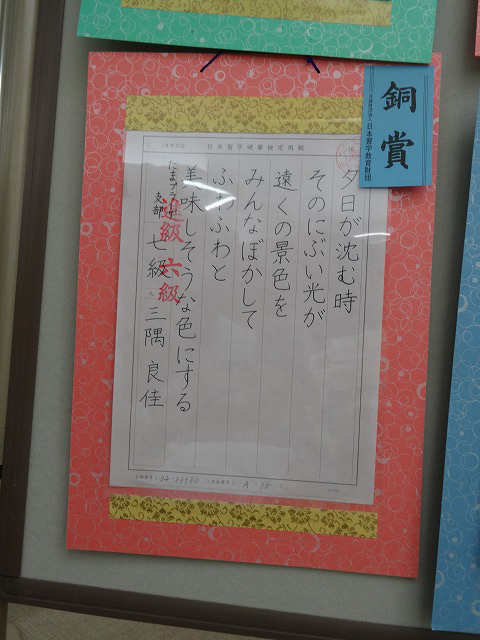 銅賞
公益財団法人 日本習字教育財団
日本習字硬筆検定用紙
夕日が沈む時
そのにぶい光が
遠くの景色を
みんなぼかして
ふわふわと
美味しそうな色にする
たまプラーザ
支部
七級 三隅良佳
進級 六級
A-